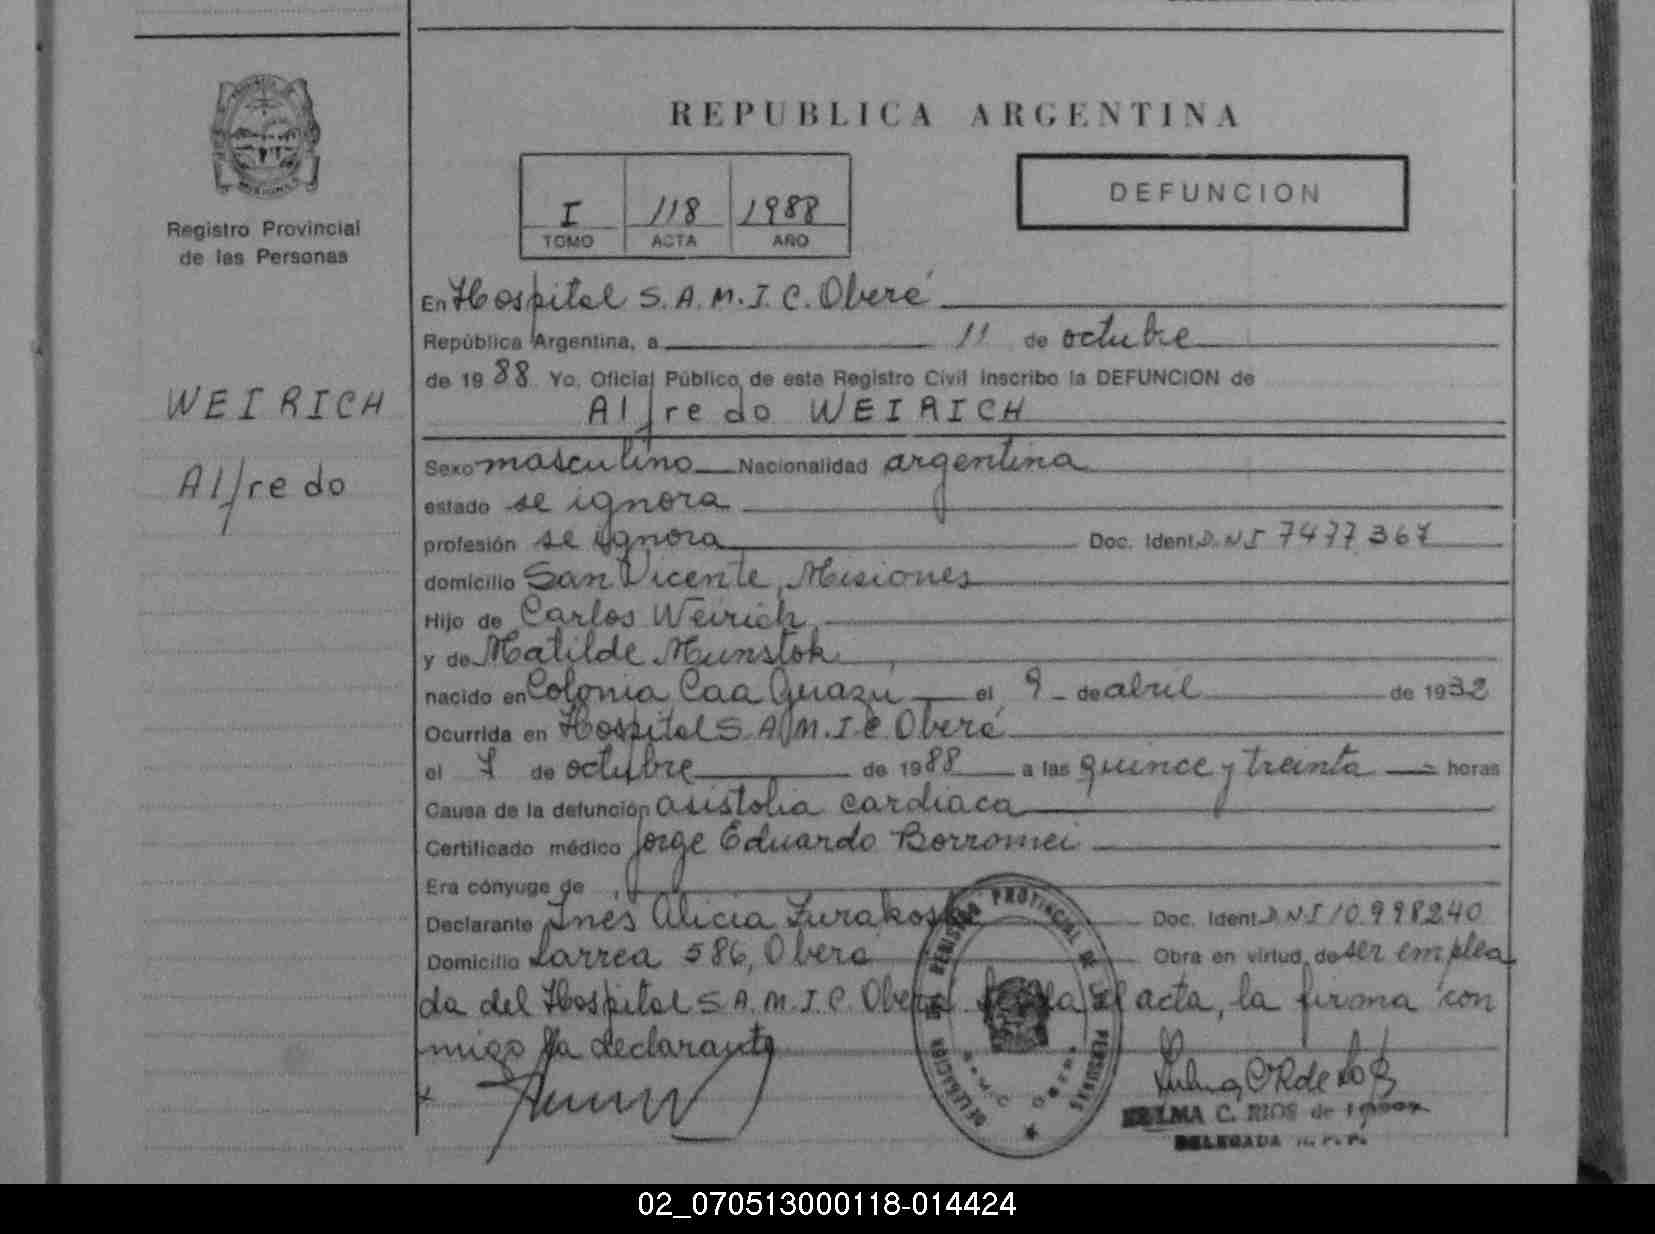 REPUBLICA ARGENTINA
I 118 1988
TOMO ACTA AÑO
DEFUNCION
Registro Provincial
de las Personas
WEIRICH
Alfredo
En Hospital S.A.M.I.C. Oberá
República Argentina, a 11 de octubre
de 19 88 Yo, Oficial Público de este Registro Civil inscribo la DEFUNCION de
Alfredo WEIRICH
Sexo masculino Nacionalidad argentina
estado se ignora
profesión se ignora Doc. Ident. D.N.I 7477367
domicilio San Vicente, Misiones
Hijo de Carlos Weirich
y de Matilde Munstok
nacido en Colonia Caa Guazú el 9 de abril de 1932
Ocurrida en Hospital S.A.M.I.C Oberá
el 7 de octubre de 1988 a las quince y treinta horas
Causa de la defunción asistolia cardiaca
Certificado médico Jorge Eduardo Borromei
Era cónyuge de
Declarante Inés Alicia Doc. Ident. D.N.I 10.998240
Domicilio Larrea 586, Oberá Obra en virtud de ser emplea
da del Hospital S.A.M.I.C. Oberá el acta, la firma con
migo la declarante
REGISTRO PROVINCIAL DE LAS PERSONAS
DELEGACION
C. RIOS de
DELEGADA R.P.P.
02_070513000118-014424